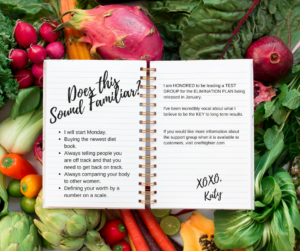 Does this
Sound Familiar?
• I will start Monday.
• Buying the newest diet
book.
• Always telling people you
are off track and that you
need to get back on track.
• Always comparing your body
to other women.
• Defining your worth by a
number on a scale.
I am HONORED to be leading a TEST
GROUP for the ELIMINATION PLAN being
released in January.
I've been incredibly vocal about what I
believe to be the KEY to long term results.
If you would like more information about
the support group when it is available to
customers, visit
XOXO,
Katy